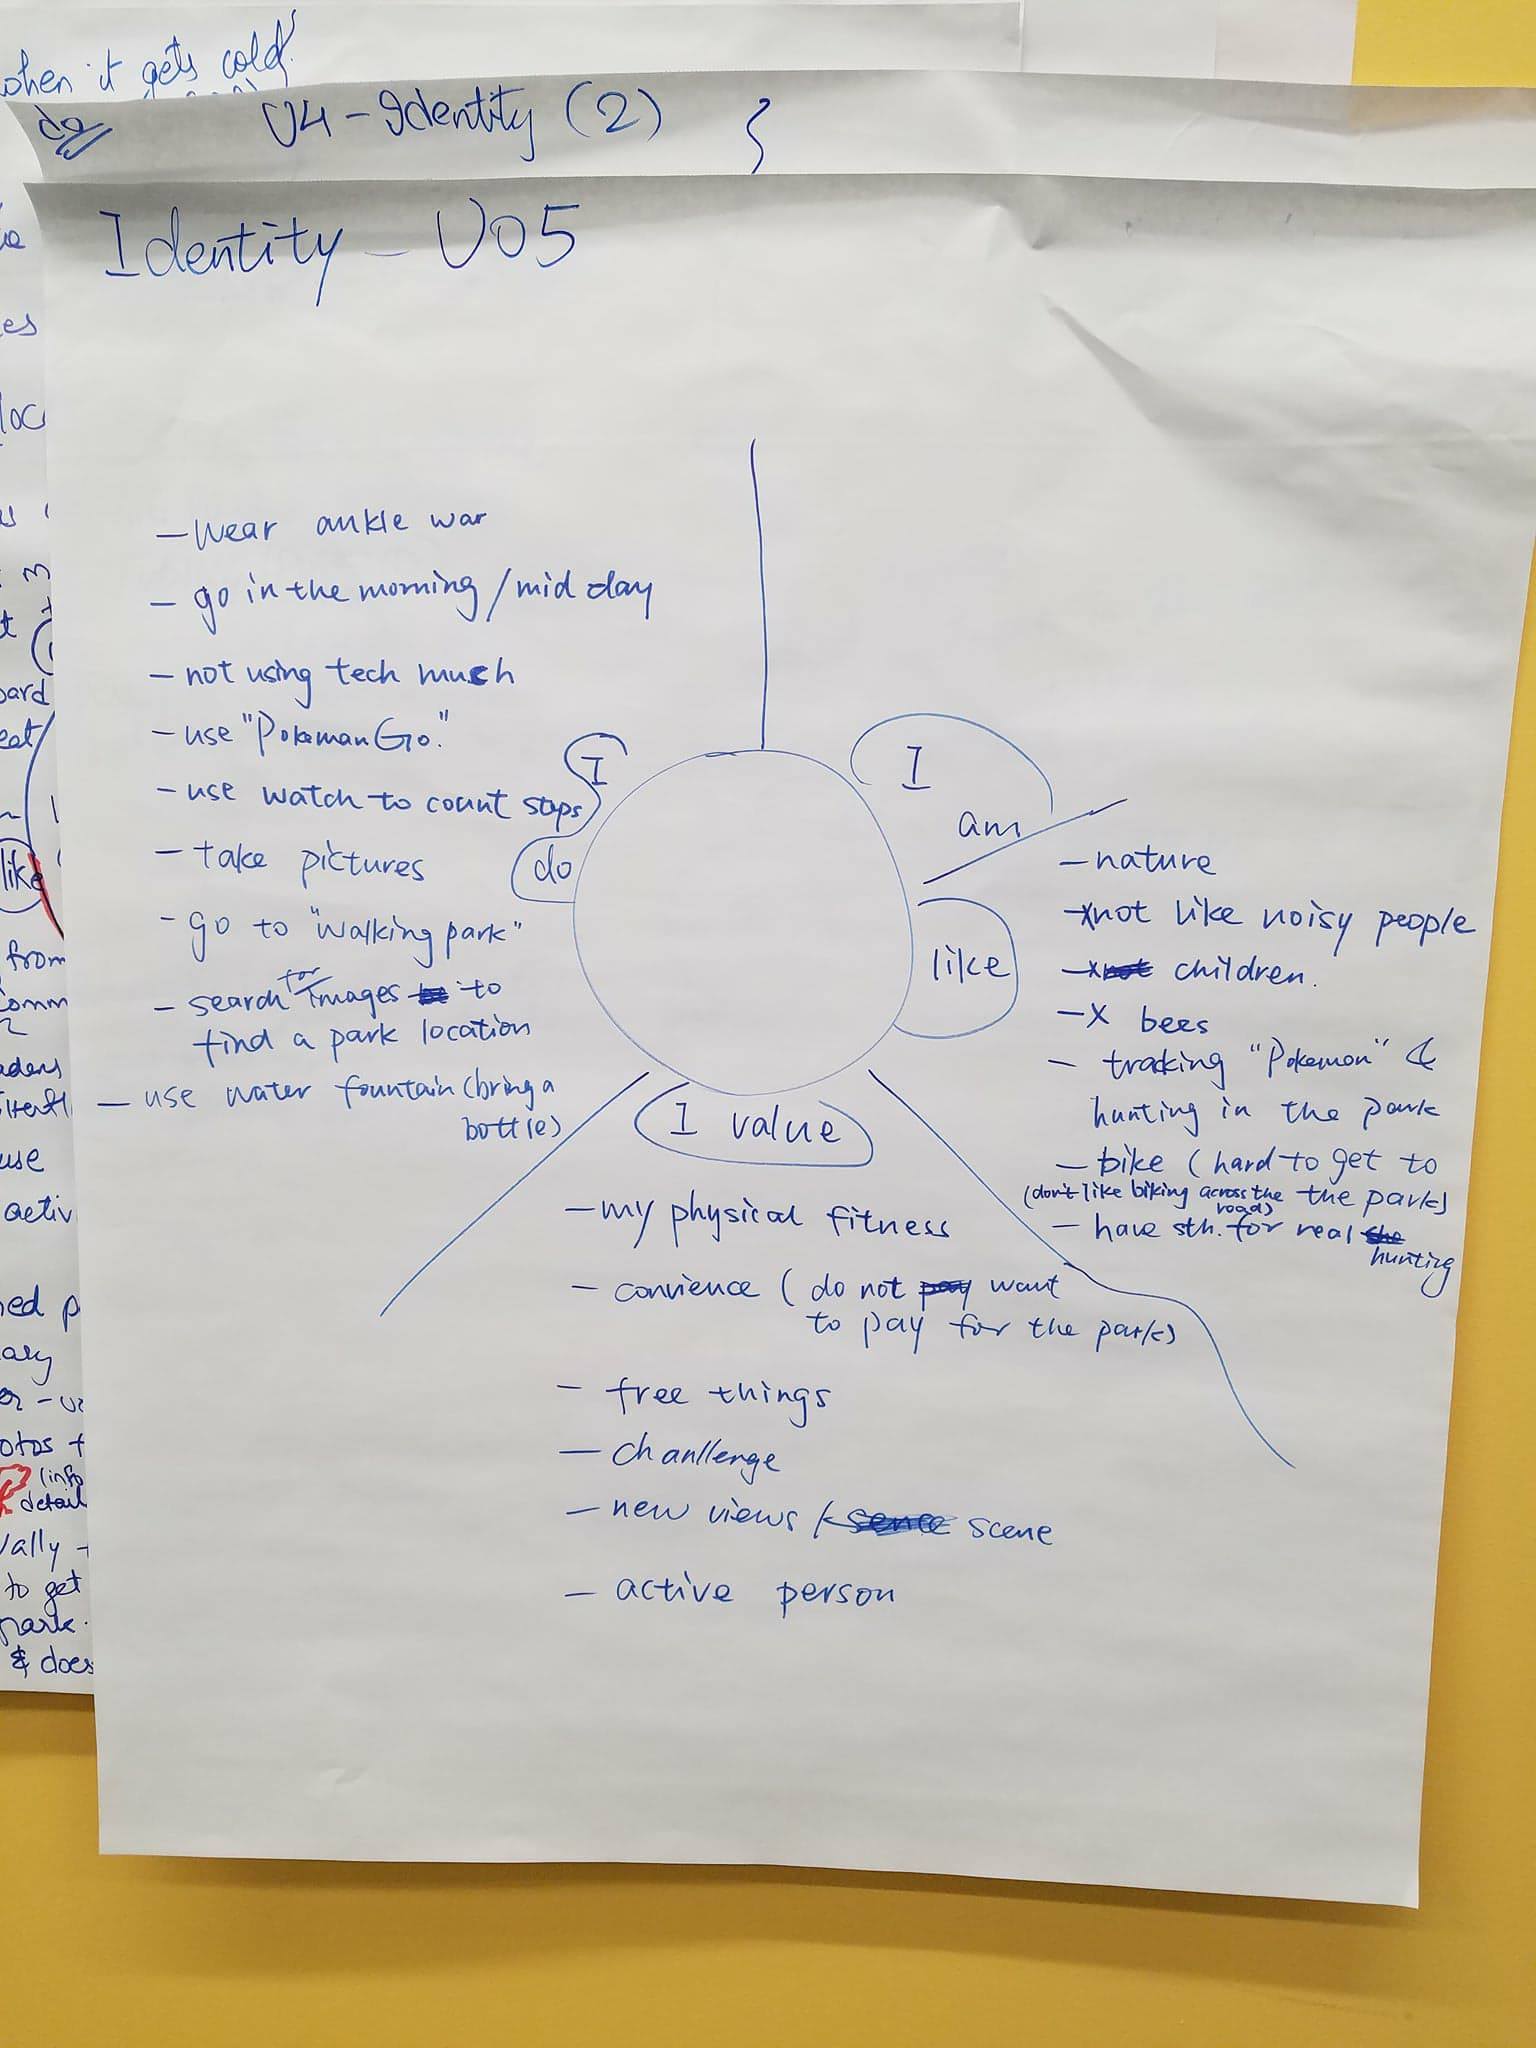 when it gets cold
do
U4 - Identity (2)
Identity - U05
- Wear ankle war
- go in the morning / mid day
- not using tech much
- use "Pokeman Go."
- use watch to count steps
- take pictures
- go to "walking park"
- search for images to
find a park location
- use water fountain (bring a
bottle)
I
do
I
am
like
- nature
- x not like noisy people
- x children.
- x bees
- tracking "Pokemon" &
hunting in the park
- bike (hard to get to
the park)
(don't like biking across the
road)
- have sth. for real
hunting
I value
- my physical fitness
- convience ( do not want
to pay for the park)
- free things
- chanllenge
- new views / scene
- active person
like
from
use
activ
(info
detail
to get
park.
& does